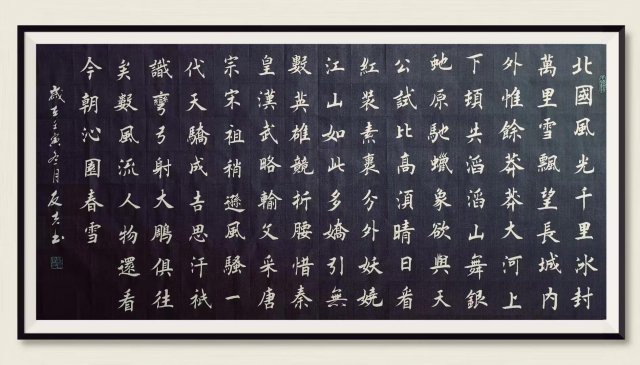 北國風光千里冰封
萬里雪飄望長城內
外惟餘莽莽大河上
下頓失滔滔山舞銀
虵原馳蠟象欲與天
公試比高須晴日看
紅裝素裹分外妖嬈
江山如此多嬌引無
數英雄競折腰惜秦
皇漢武略輸文采唐
宗宋祖稍遜風騷一
代天驕成吉思汗衹
識彎弓射大鵰俱往
矣數風流人物還看
今朝沁園春雪
歲在壬寅冬月